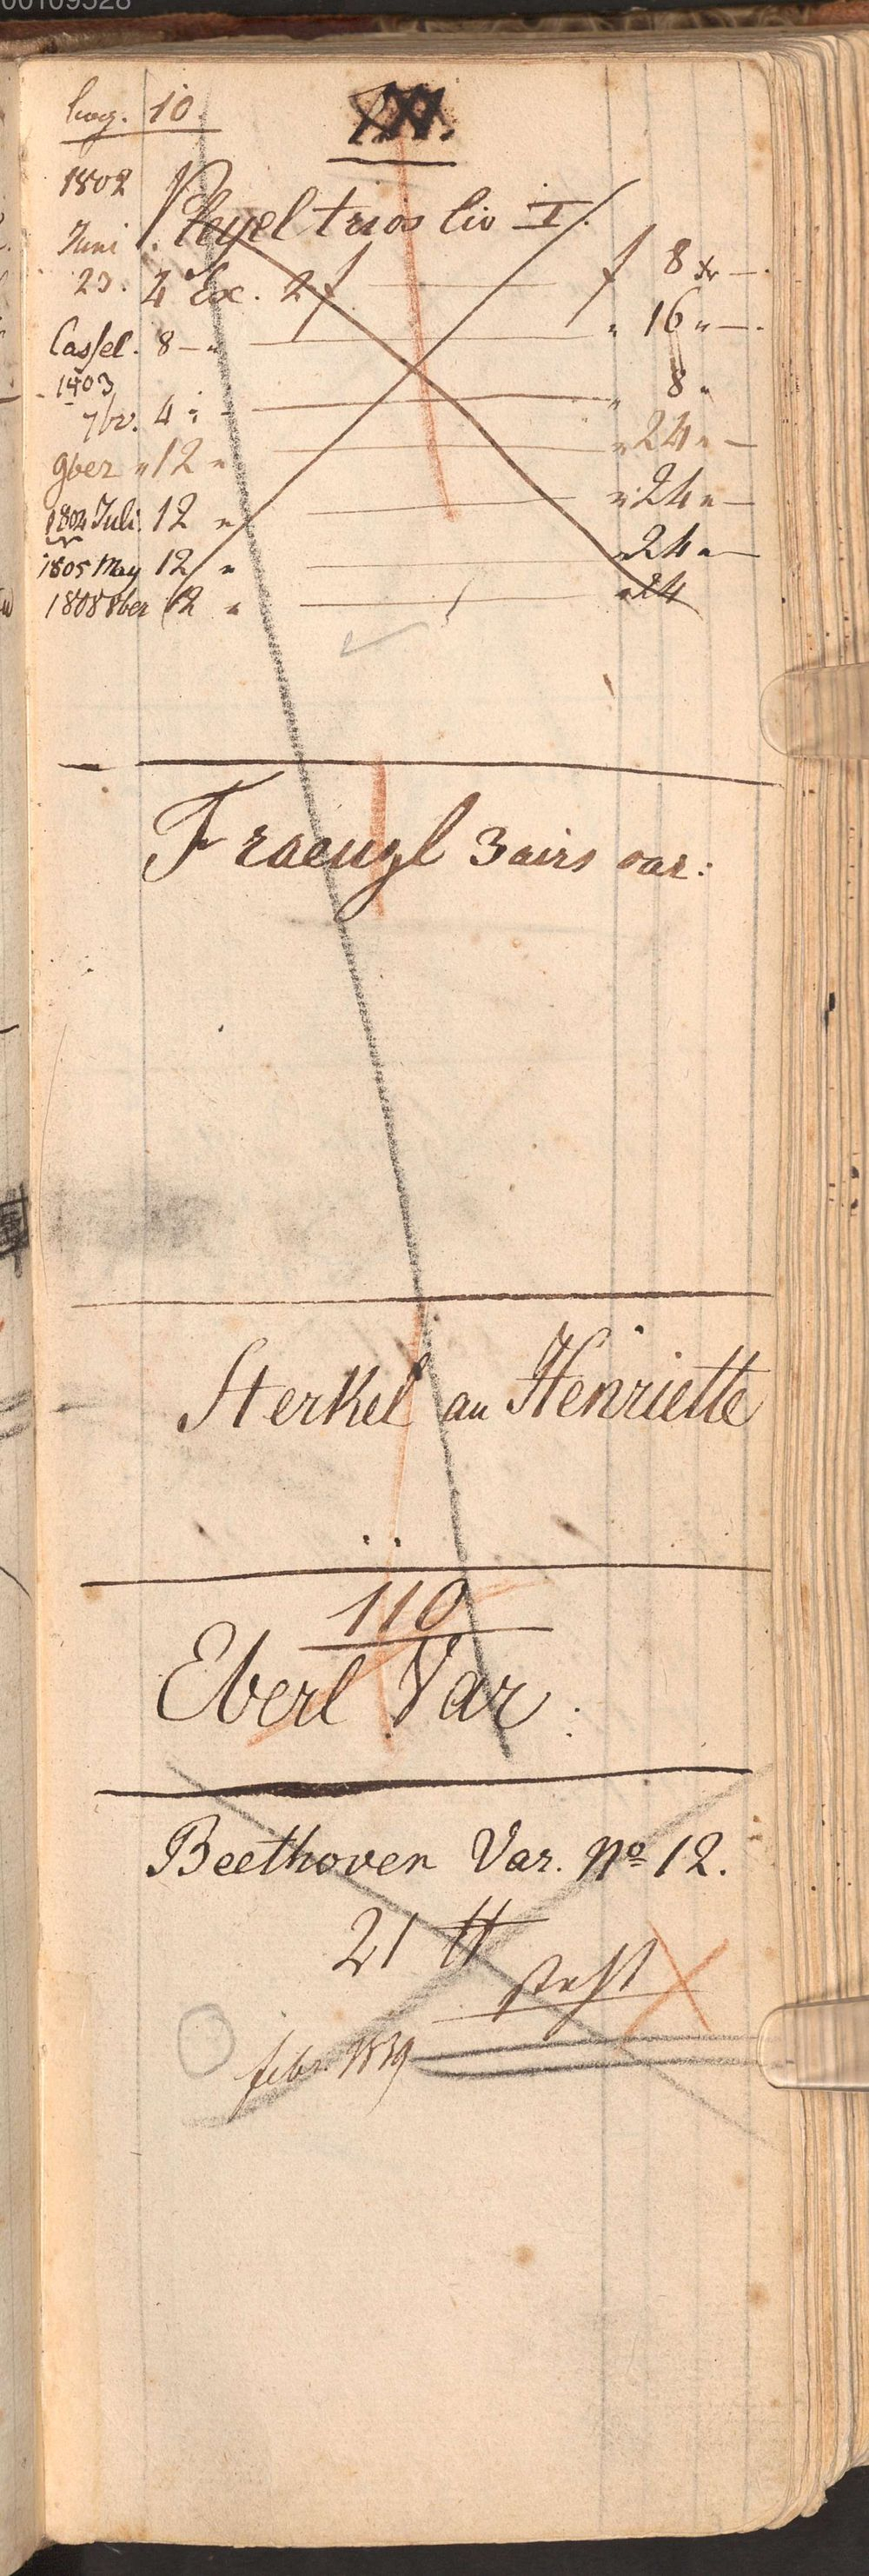 00109528
pag. 10.
1802 Pleyel trios liv I.
Juni
23. 4 Ex. 2 f — f 8 xr —
Cassel. 8 — " — " 16 " —
1803
7br. 4 " — " 8 "
9ber " 12 " — " 24 " —
1804 Juli 12 " — " 24 " —
1805 May 12 " — " 24 " —
1808 8ber 12 " — " 24
Fraenzl 3 airs var:
Sterkel an Henriette
110
Eberl Var:
Beethoven Var. No 12.
21 tt
steht
febr. 1839